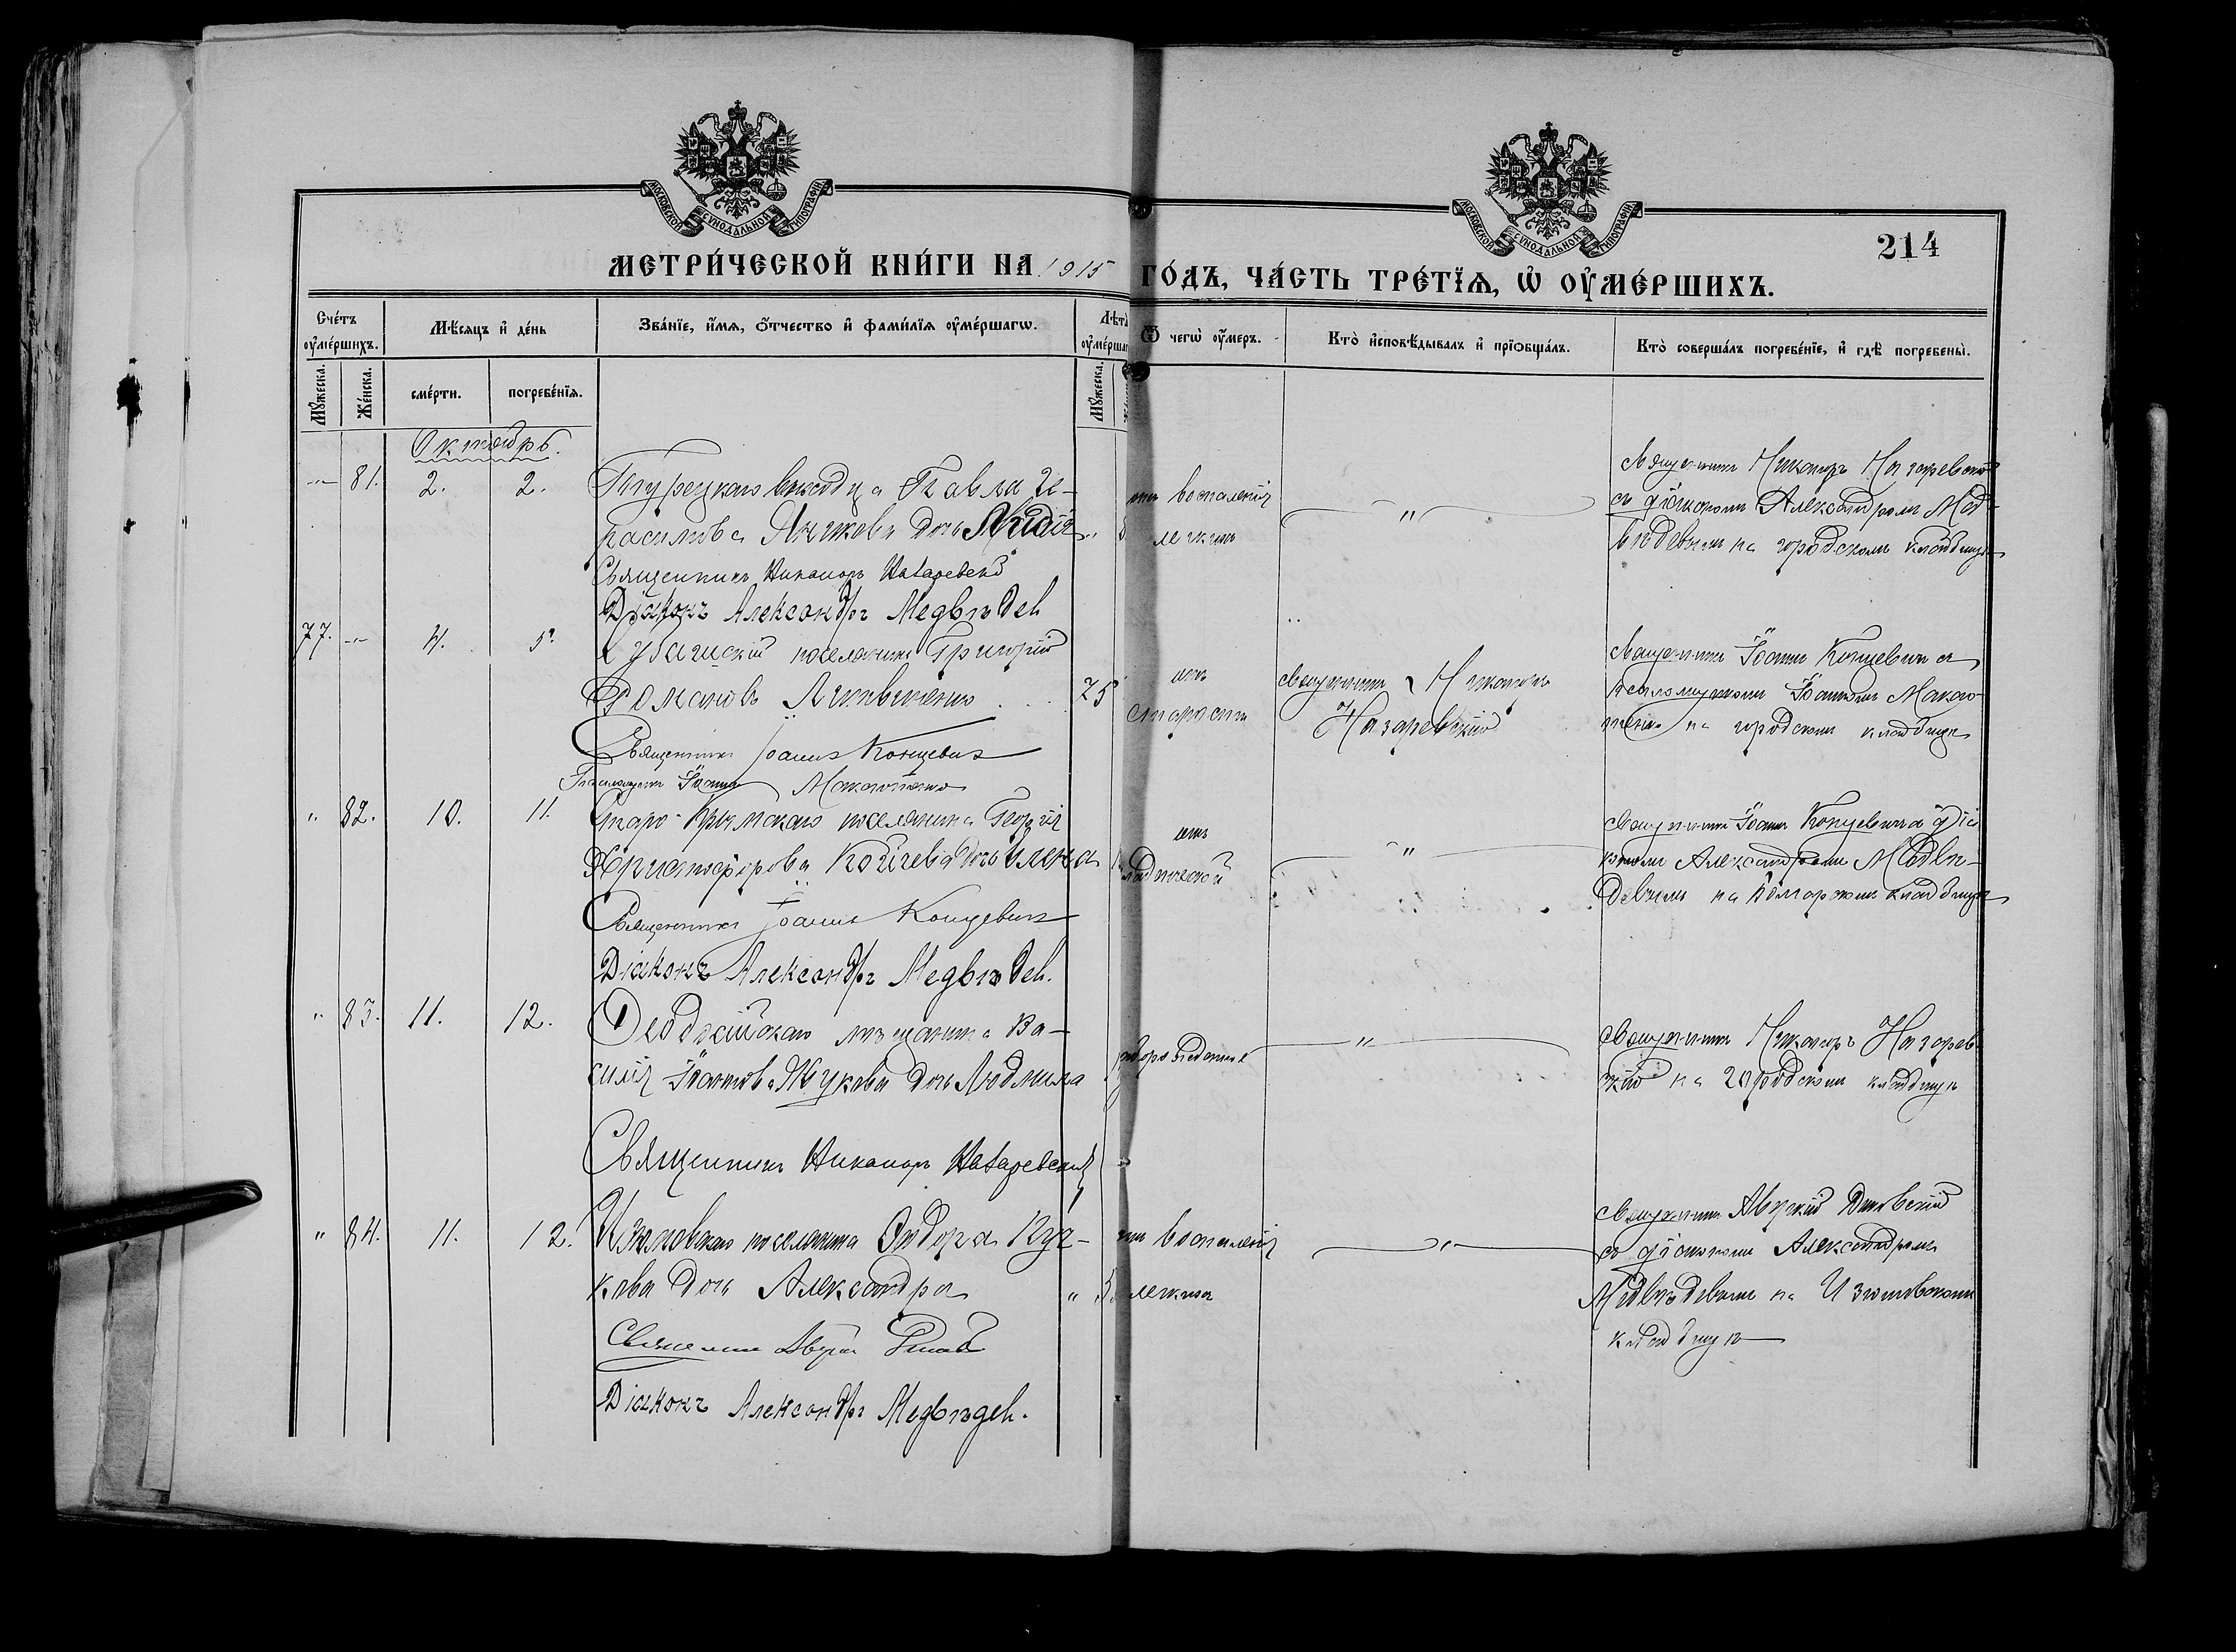 МОСКОВСКОЙ СУНОДАЛЬНОЙ ТИПОГРАФІИ
МОСКОВСКОЙ СУНОДАЛЬНОЙ ТИПОГРАФІИ
214
МЕТРИ́ЧЕСКОЙ КНИ́ГИ НА 1915 ГО́ДЪ, ЧА́СТЬ ТРЕ́ТЇѦ, Ѡ ОУ҆МЕ́РШИХЪ.
Сче́тъ оу҆ме́ршихъ.
Мꙋ́жеска.
Же́нска.
Мѣ́сяцъ и҆ де́нь
сме́рти.
погребе́нїѧ.
Зва́нїе, и҆́мѧ, ѻ҆́тчество и҆ фами́лїѧ оу҆ме́ршагѡ.
Лѣ́та оу҆ме́ршаг
Мꙋ́жеска.
Ѿ чегѡ̀ оу҆́меръ.
Кто̀ и҆сповѣ́дывалъ и҆ прїѡбща́лъ.
Кто̀ соверша́лъ погребе́нїе, и҆ гдѣ̀ погребены̀.
Октябрь.
— 81. 2. 2.
Турецкаго выходца Павла Ге-
расимова дочь Лидія
Священникъ Никаноръ Назаревскій
Діаконъ Александръ Медвѣдев
отъ воспаленія
легкихъ
"
Священникъ Никаноръ Назаревскій
съ діакономъ Александромъ Мед-
вѣдевымъ на городскомъ кладбищѣ
77. — 4. 5.
поселянинъ Григорій
Романовъ
75
Священникъ Іоаннъ Концевичъ
Псаломщикъ Іоаннъ
отъ
старости
священникъ Никаноръ
Назаревскій
Священникъ Іоаннъ Концевичъ съ
псаломщикомъ Іоанномъ
на городскомъ кладбищѣ
" 82. 10. 11.
Старо-Крымскаго поселянина Георгія
Христофорова Койчева дочь Елена
Священникъ Іоаннъ Концевичъ
Діаконъ Александръ Медвѣдев.
отъ
"
Священникъ Іоаннъ Концевичъ съ діа-
кономъ Александромъ Медвѣ-
девымъ на болгарскомъ кладбищѣ
" 83. 11. 12.
Ѳеодосійскаго мѣщанина Ва-
силія Іоаннова Жукова дочь Людмила
Священникъ Никаноръ Назаревскій
"
Священникъ Никаноръ Назарев-
скій на городскомъ кладбищѣ
" 84. 11. 12.
Изюмовскаго поселянина Ѳедора Куч-
кова дочь Александра
"
Священникъ
Діаконъ Александръ Медвѣдев.
отъ воспаленія
легкихъ
"
Священникъ
съ діакономъ Александромъ
Медвѣдевымъ на Изюмовскомъ
кладбищѣ